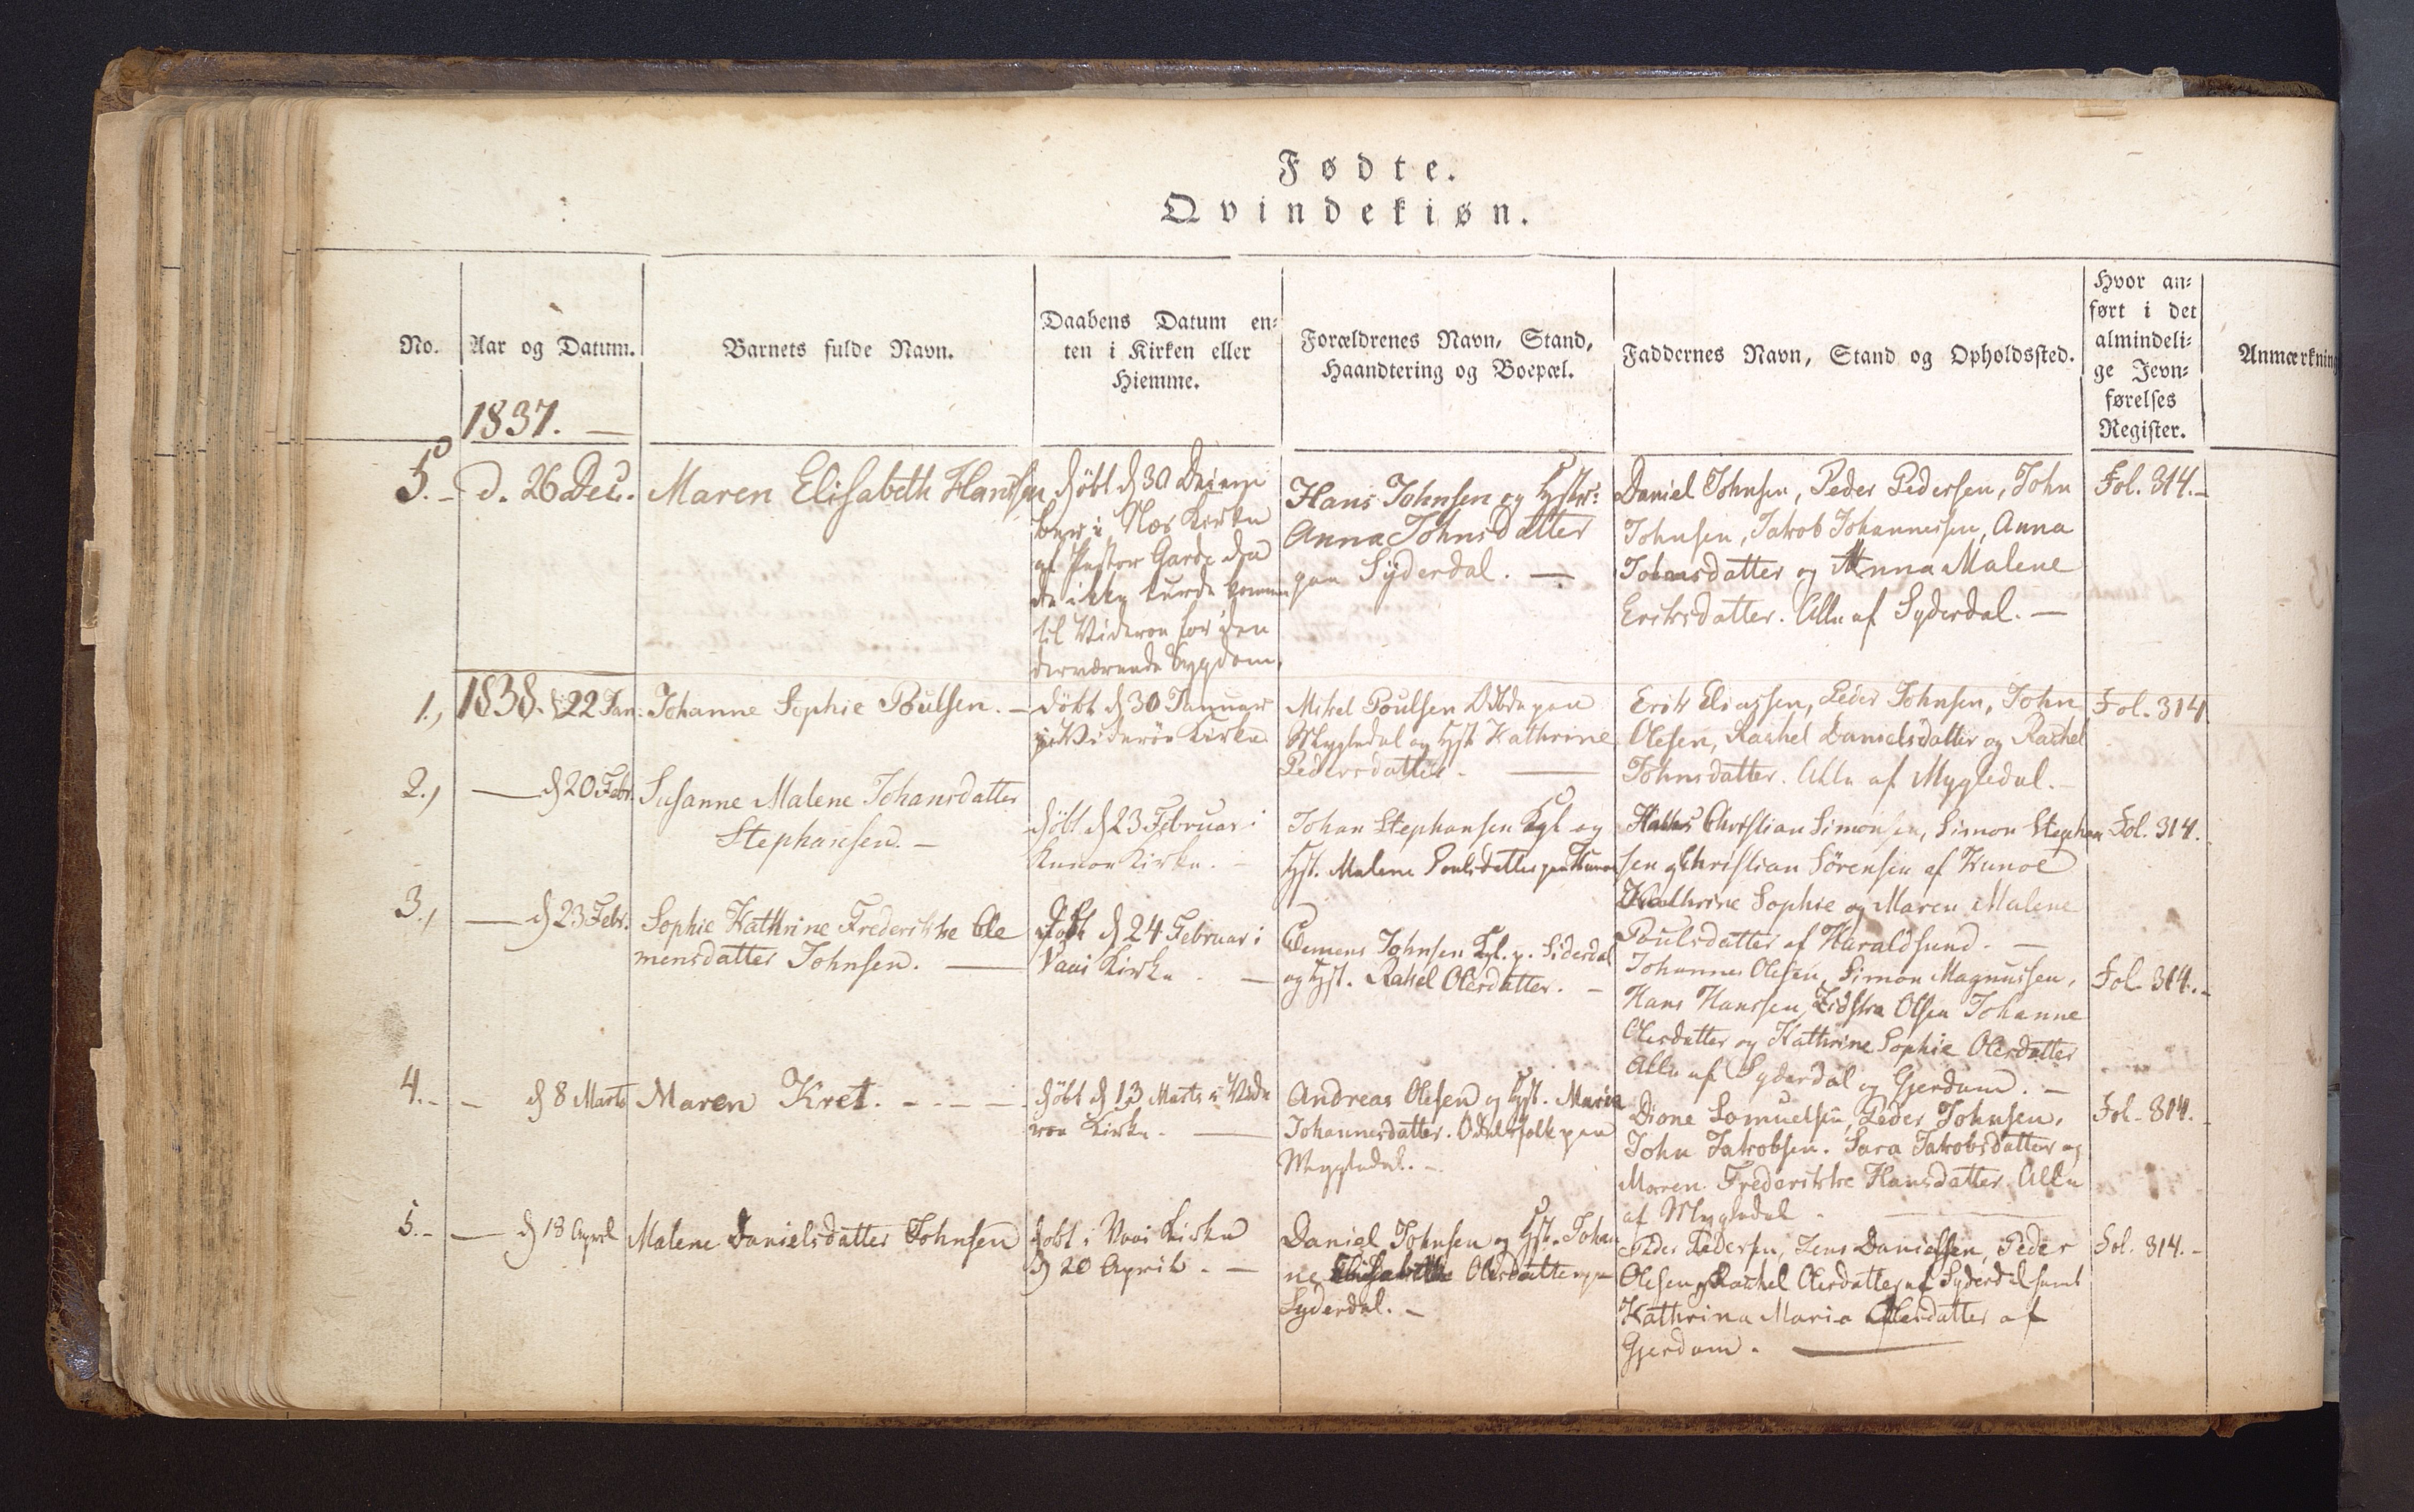 Fødte.
Qvindekiøn.
No.
Aar og Datum.
Barnets fulde Navn.
Daabens Datum en-
ten i Kirken eller
Hiemme.
Forældrenes Navn, Stand,
Haandtering og Boepæl.
Faddernes Navn, Stand og Opholdssted.
Hvor an-
ført i det
almindeli-
ge Jevn-
førelses
Register.
Anmærkning
1837. —
5.- d. 26 Dec. Maren Elisabeth Hansen
døbt d 30 Decem
ber i Næs Kirke
af Pastor Garde da
de ikke turde komme
til Videroe for den
derværende Sygdom.
Hans Johnsen og Hstr:
Anna Johnsdatter
paa Syderdal. —
Daniel Johnsen, Peder Pedersen, John
Johnsen, Jakob Johannesen, Anna
Johnsdatter og Anna Malene
Eriksdatter. Alle af Syderdal. —
Fol. 314.-
1., 1838. d 22 Jan. Johanne Sophie Poulsen. —
døbt d 30 Januar
i Viderøe Kirke
Mikel Poulsen paa
Mygledal og Hst Kathrine
Pedersdatter. —
Erik Eliassen, Peder Johnsen, John
Olesen, Rachel Danielsdatter og Rachel
Johnsdatter. Alle af Mygledal. -
Fol. 314
2., — d 20 Febr. Susanne Malene Johansdatter
Stephansen. —
døbt d 23 Februar i
Kunoe Kirke. -
Johan Stephansen Kgl og
Hst. Malene Poulsdatter paa Kunoe
Christian Simonsen, Simon Stephan
sen og Christian Sørensen af Kunoe
Kathrine Sophie og Maren Malene
Poulsdatter af Haraldsund. —
Fol. 314.
3., — d 23 Febr. Sophie Kathrine Frederikke Cle
mensdatter Johnsen. —
døbt d 24 Februar i
Vaai Kirke. —
Clemens Johnsen Kgl. p. Siderdal
og Hst. Rakel Olesdatter. -
Johannes Olesen, Simon Magnussen,
Hans Hanssen, Olsen Johanne
Olesdatter og Kathrine Sophie Olesdatter
Alle af Syderdal og Gjerdum. —
Fol. 314.-
4.- - d 8 Marts Maren Kret. - - - -
døbt d 13 Marts i Vide
roe Kirke. —
Andreas Olesen og Hst. Maria
Johannesdatter. Odelsfolk paa
Mygledal. -
Dione Samuelsen, Peder Johnsen,
John Jakobsen. Sara Jakobsdatter og
Maren Frederikke Hansdatter. Alle
af Mygledal. —
Fol. 314.
5.- — d 18 April Malene Danielsdatter Johnsen
døbt i Vaai Kirke
d 20 April. —
Daniel Johnsen og Hst. Johan
ne Elisabeth Olesdatter paa
Syderdal. -
Peder Pedersen, Jens Danielsen, Peder
Olesen og Rachel Olesdatter af Syderdal samt
Kathrina Maria Olesdatter af
Gjerdum. —
Fol. 314.-